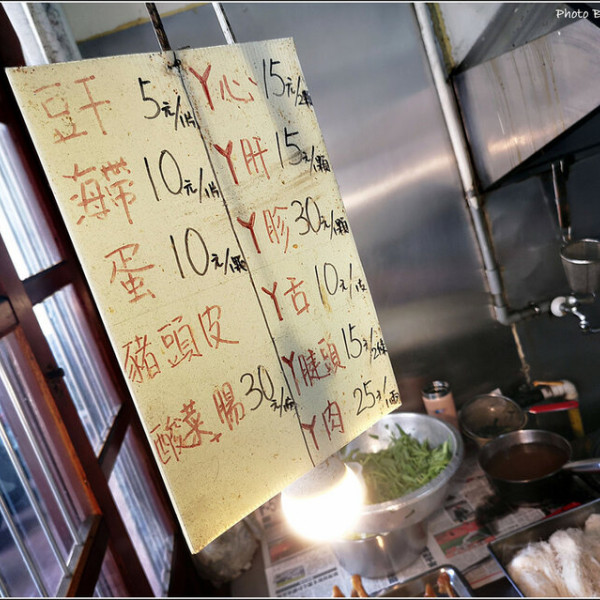 Photo B
豆干 5元/1片
海帶 10元/1片
蛋 10元/1顆
豬頭皮
酸菜 腸 30元/1
丫心 15元/2顆
丫肝 15元/1顆
丫胗 30元/1顆
丫舌 10元/1
丫腱頭 15元/2
丫肉 25元/1